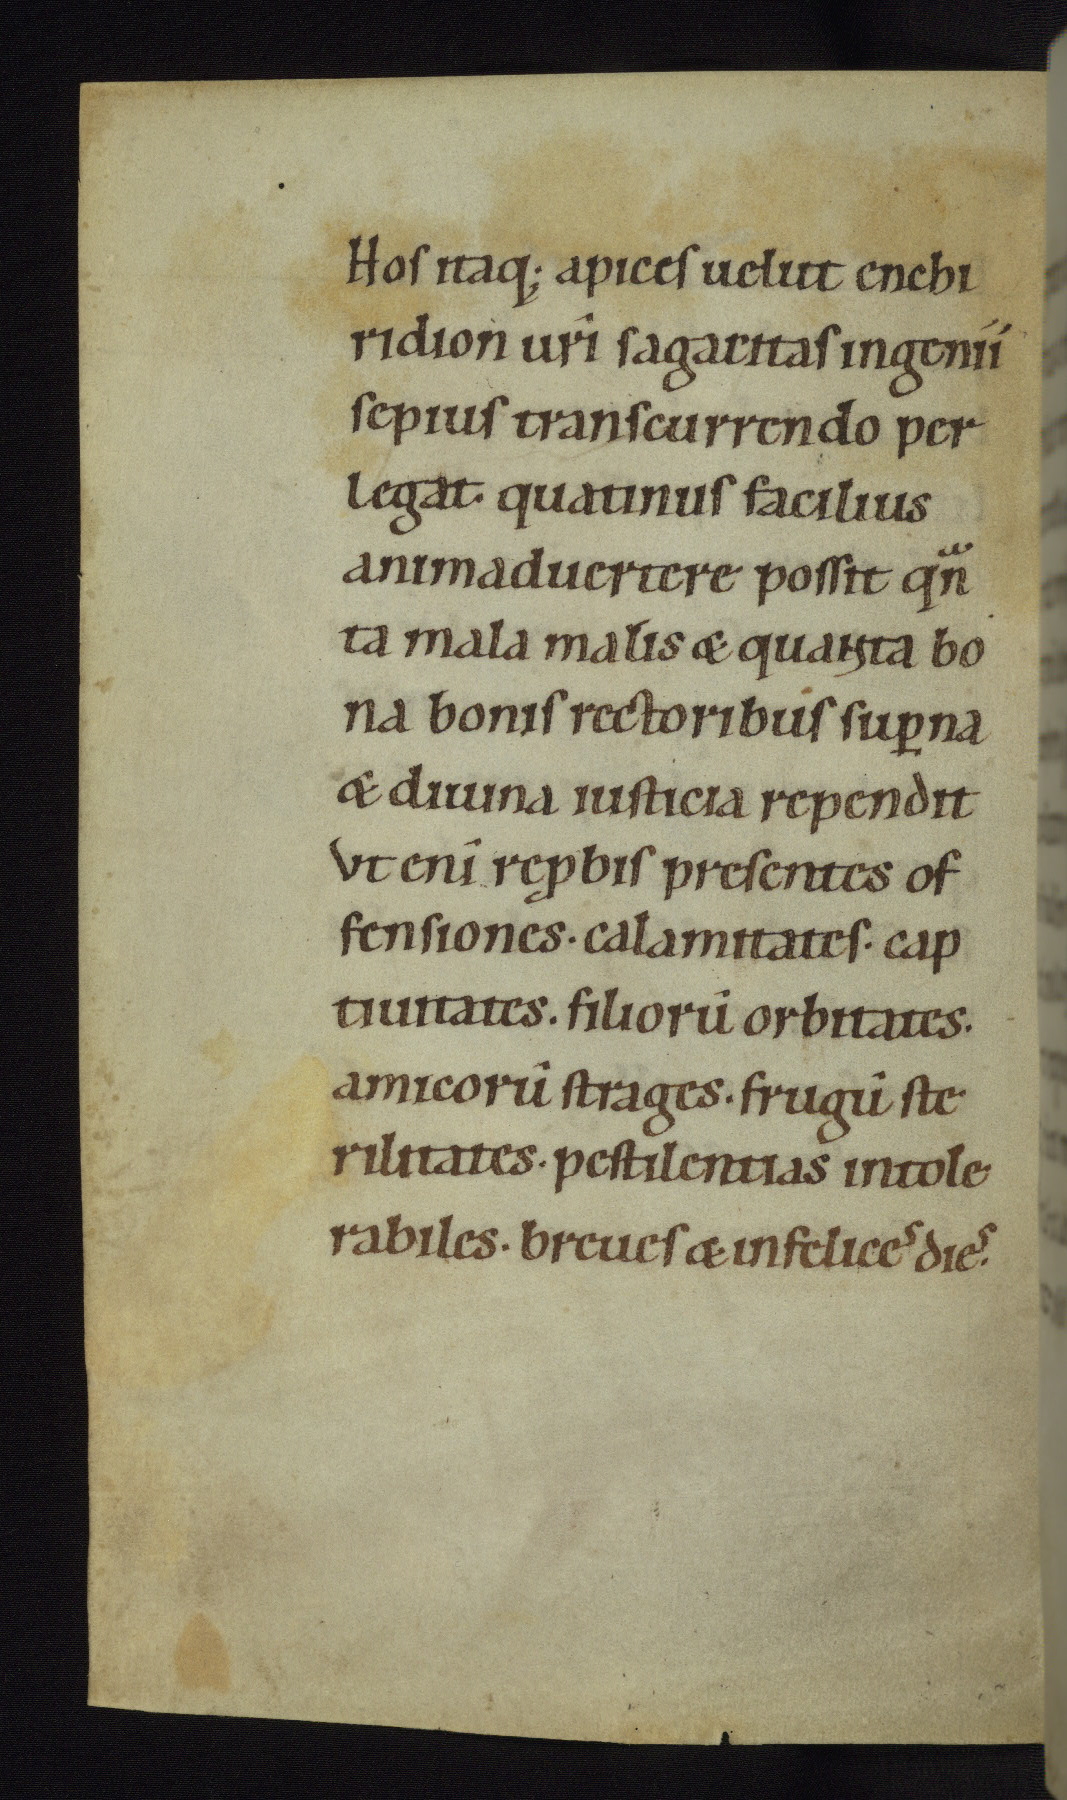 Hos itaq; apices uelut enchi
ridion uri̅ sagacitas ingenii
sepius transcurrendo per
legat· quatinus facilius
animaduertere possit qn̅
ta mala malis & quanta bo
na bonis rectoribus suꝑna
& diuina iusticia rependit
Vt eni̅ reꝓbis presentes of
fensiones· calamitates· cap
tiuitates. filioru̅ orbitates.
amicoru̅ strages· frugu̅ ste
rilitates· pestilentias intole
rabiles· breues & infelices dies.